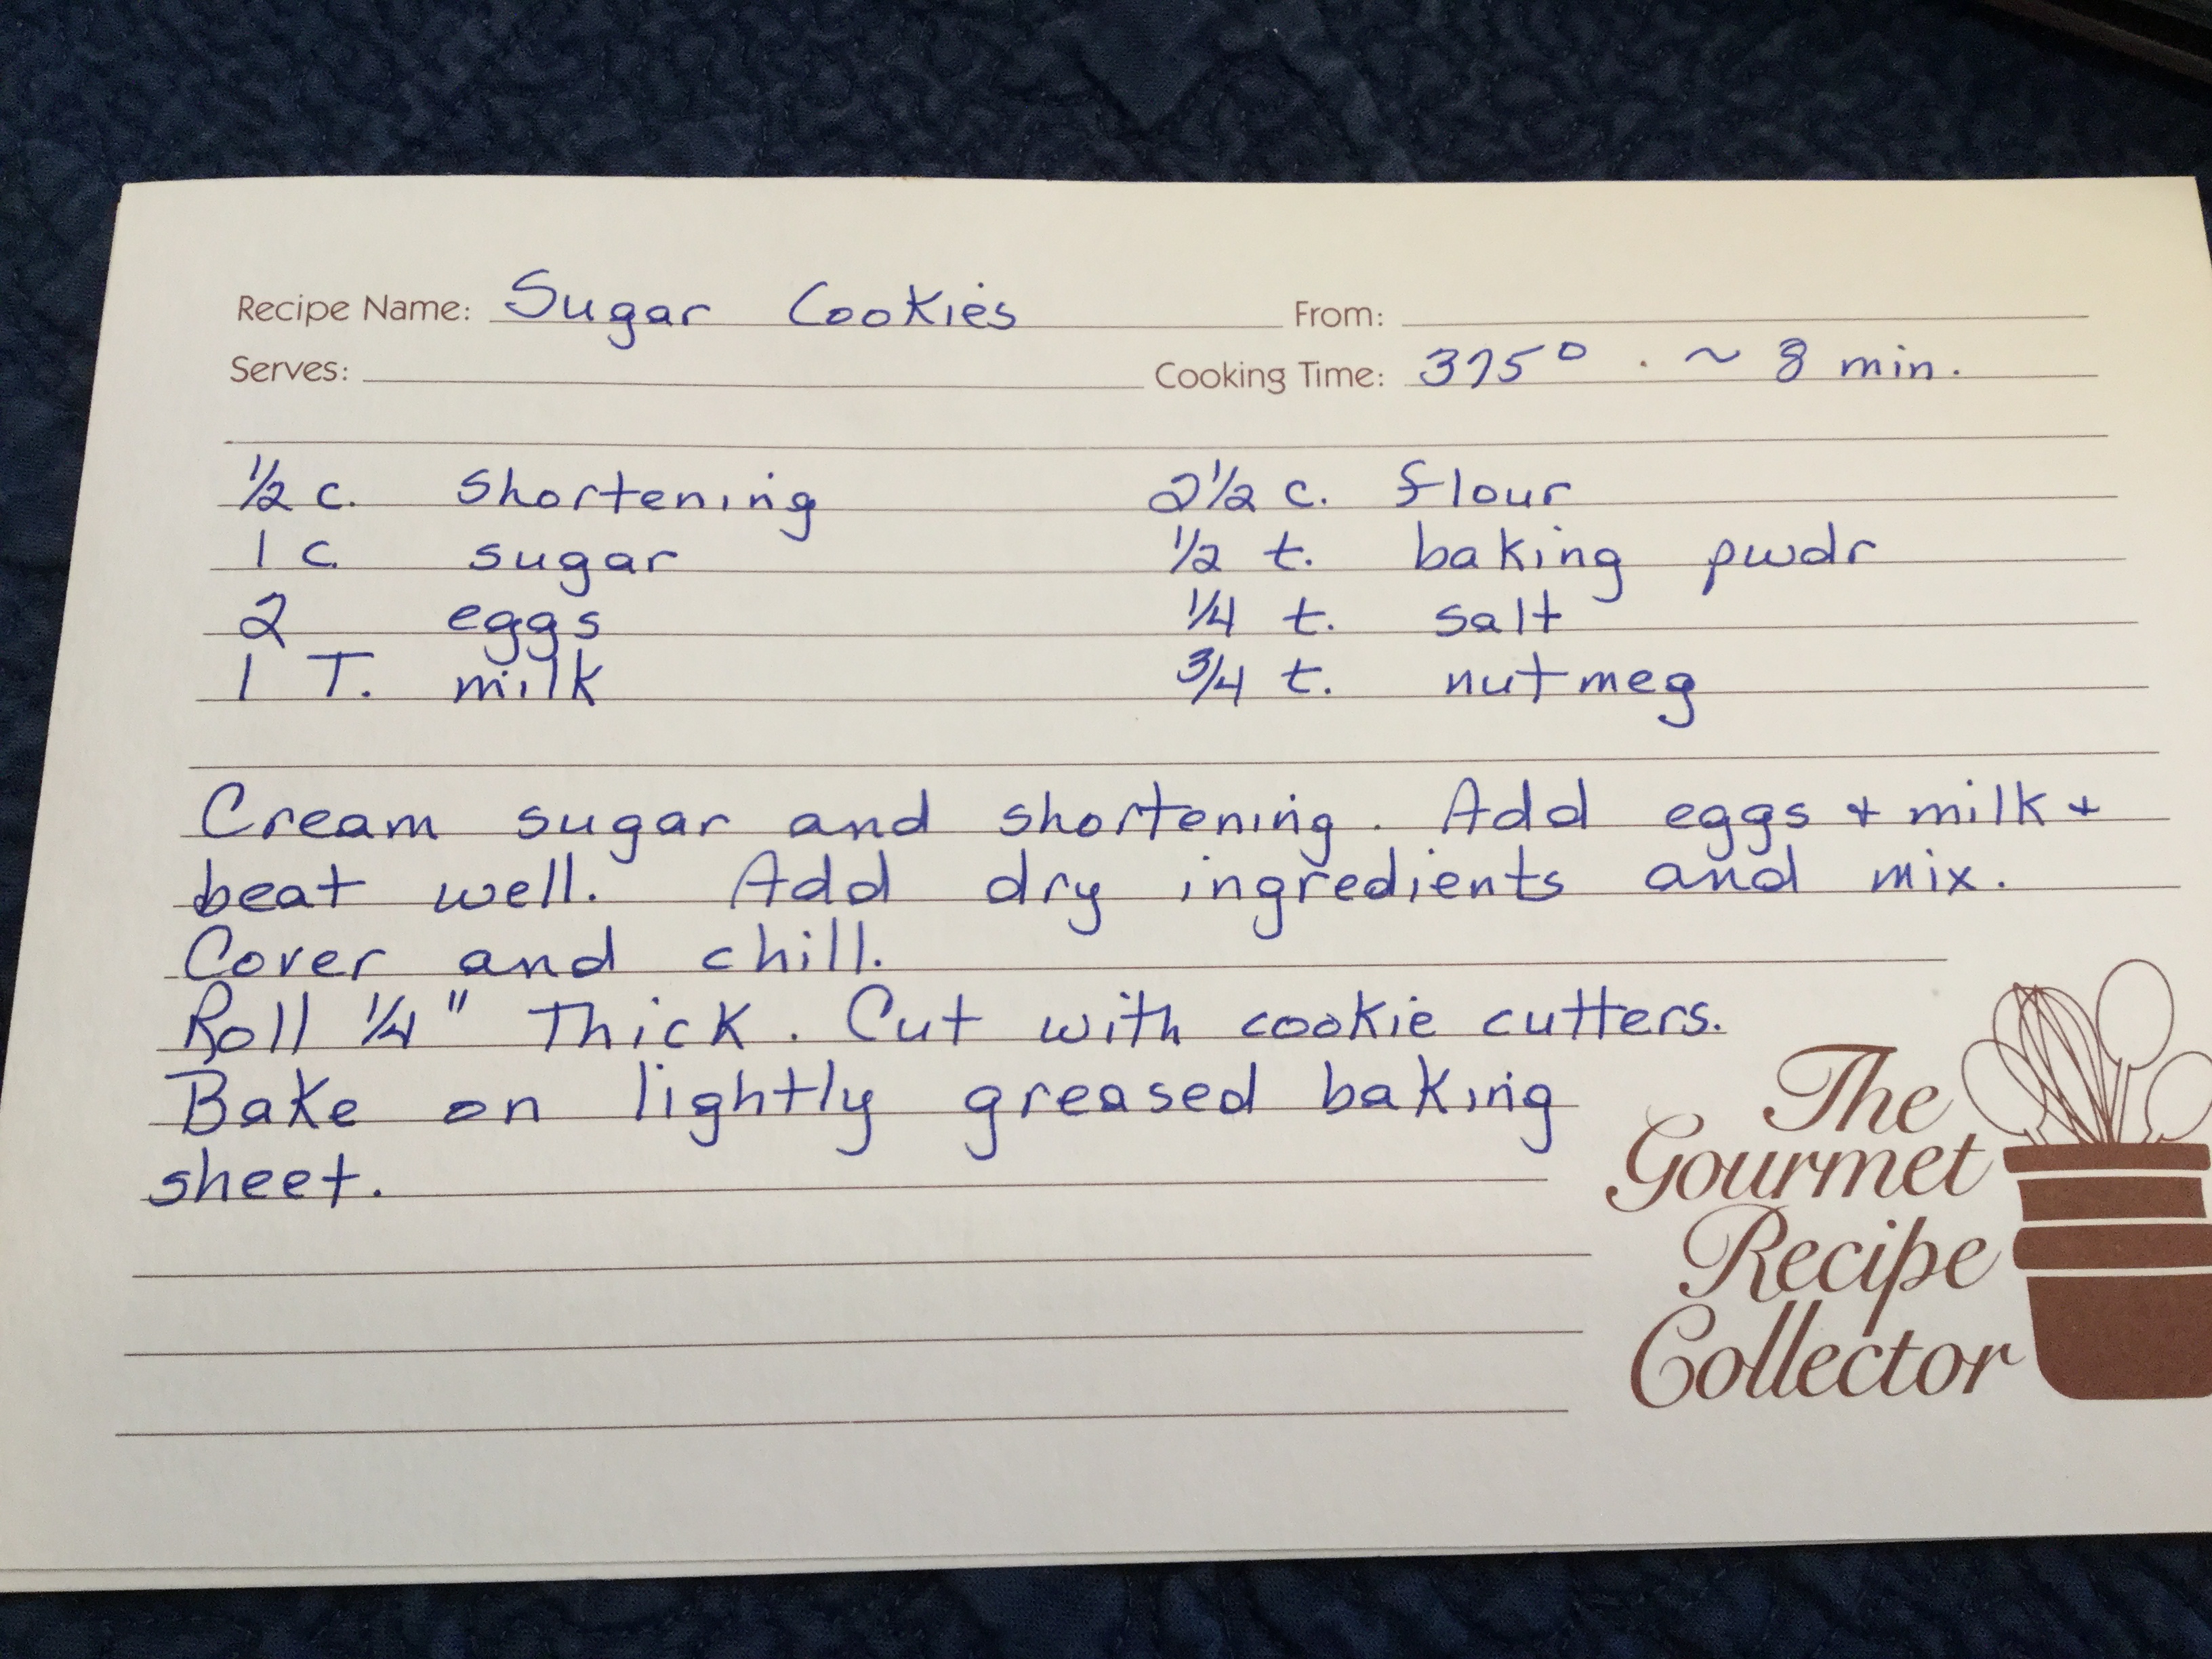 Recipe Name: Sugar Cookies From:
Serves: Cooking Time: 375° . ~ 8 min.
1/2 c. shortening 2 1/2 c. flour
1 c. sugar 1/2 t. baking pwdr
2 eggs 1/4 t. salt
1 T. milk 3/4 t. nutmeg
Cream sugar and shortening. Add eggs + milk +
beat well. Add dry ingredients and mix.
Cover and chill.
Roll 1/4" Thick. Cut with cookie cutters.
Bake on lightly greased baking
sheet.
The
Gourmet
Recipe
Collector